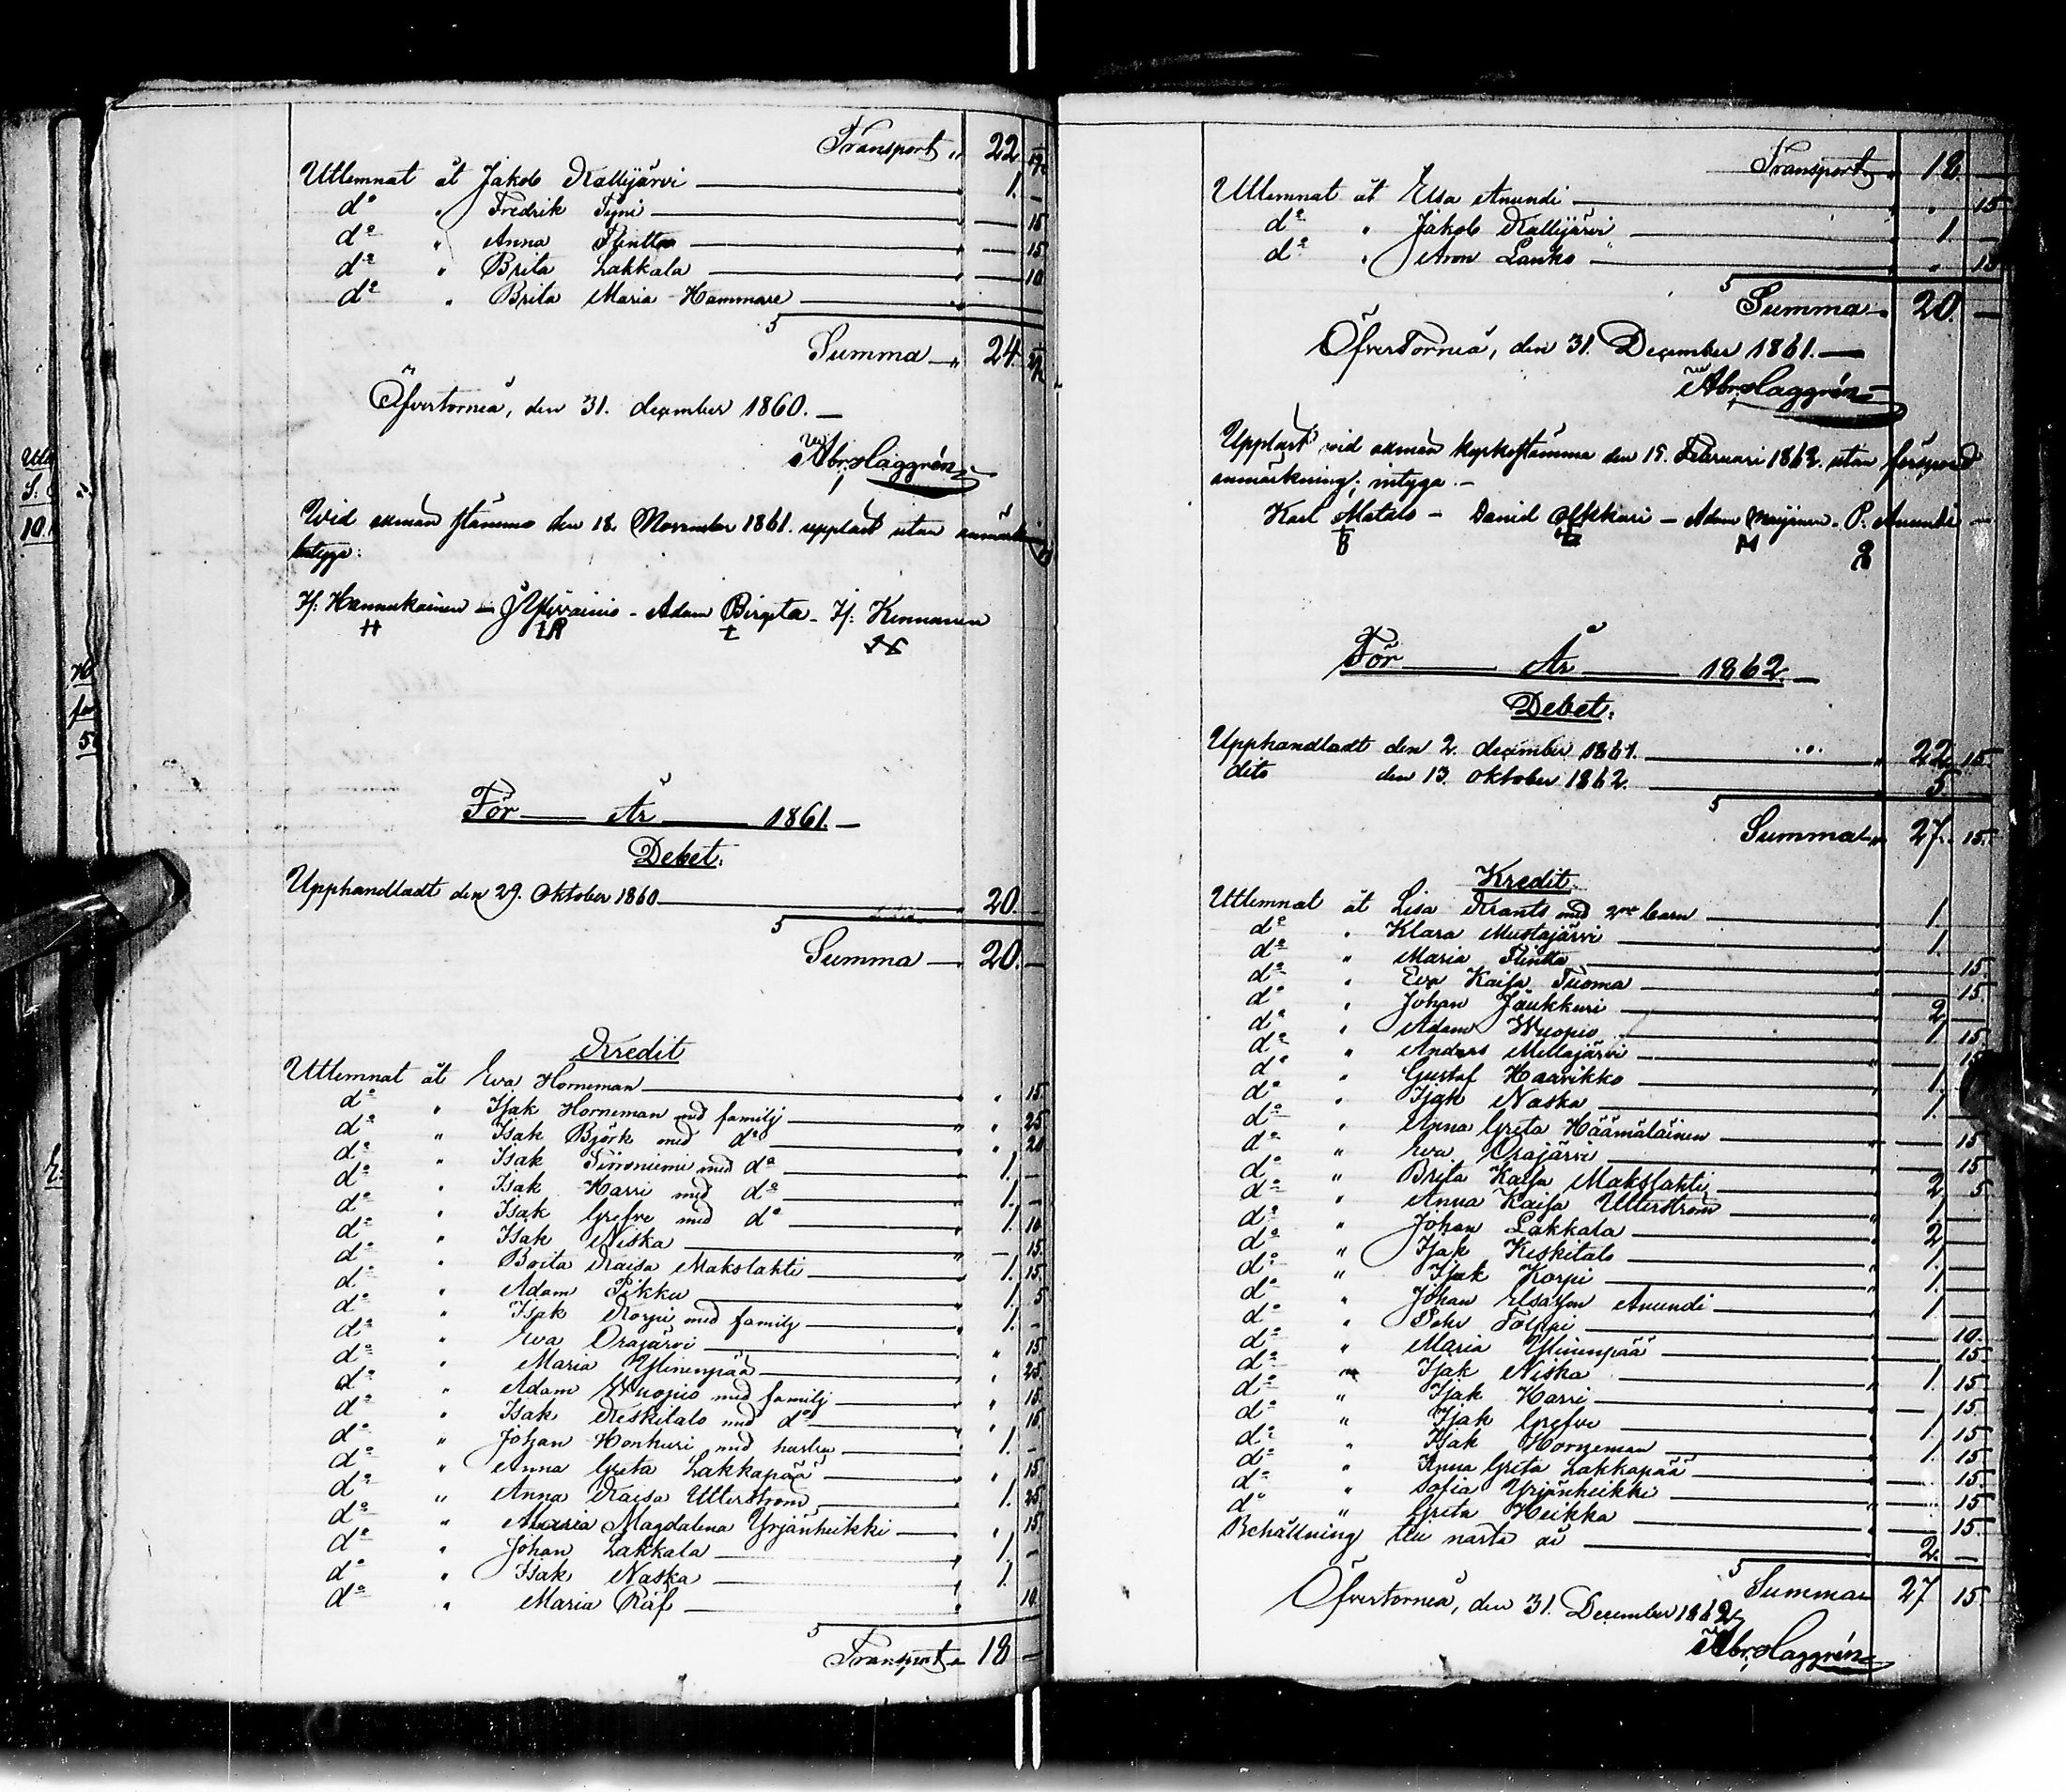 Transport " 22 19
Utlemnat åt Jakob Kallijärvi " 1. –
do " Fredrik Tyni " — 15
do " Anna Flintta " — 15
do " Brita Lakkala " — 10
do " Brita Maria Hammare "
Summa " 24
Öfvertorneå, den 31. december 1860. —
Abr. Haggrén
Wid allmän stämma den 18. November 1861. uppläst utan anmärkning
intyga:
Is: Hannukainen – J. Ylivainio – Adam Birgeta – Is: Kinnanen
För — År — 1861. —
Debet.
Upphandladt den 29. Oktober 1860 " 20. —
Summa — " 20. —
Kredit
Utlemnat åt Eva Horneman " " 15
do " Isak Horneman med familj " " 25
do " Isak Björk med do " " 20
do " Isak Törröniemi med do " 1. –
do " Isak Harri med do " 1. –
do " Isak Grefve med do " 1. 10
do " Isak Niska " — 15.
do " Brita Kaisa Makslahti " 1. 15
do " Adam Pikku " 1. 5
do " Isak Korpi med familj " 1. –
do " Eva Orajärvi " " 15
do " Maria Ylinenpää " " 25.
do " Adam Wuopio med familj " " 15
do " Isak Keskitalo med do " " 15.
do " Johan Honkuri med hustru " 1. –
do " Anna Greta Lakkapää " " 15
do " Anna Kaisa Utterström " 1. 25
do " Maria Magdalena Yrjänheikki " " 15.
do " Johan Lakkala " 1. –
do " Isak Naska " 1.
do " Maria Räf " 10.
Transport " 18 —
Transport " 18. —
Utlemnat åt Elsa Anundi " " 15
do " Jakob Kallijärvi " 1. —
do " Aron Lanko " " 15
Summa " 20. —
Öfvertorneå, den 31. December 1861. —
Abr. Haggrén
Uppläst vid allmän kyrkostämma den 15. Februari 1863. utan försport
anmärkning; intyga –
Karl Matalo – Daniel – Adam – P: Anundi –
För — År — 1862. —
Debet.
Upphandladt den 2. december 1861. " 22 15.
dito den 13. oktober 1862. " 5
Summa " 27. 15.
Kredit.
Utlemnat åt Lisa Krants med 2ne barn " 1.
do " Klara Mustajärvi " 1. —
do " Maria Flintta " — 15
do " Eva Kaisa Tuoma " — 15
do " Johan Jäukkuri " 2, —
do " Adam Wuopio " 1 15
do " Anders Mellajärvi " — 15
do " Gustaf Haavikko " 1. —
do " Isak Naska " 1.
do " Anna Greta Häämäläinen " — 15
do " Eva Orajärvi " — 15
do " Brita Kaisa Makslahti " 2, 5
do " Anna Kaisa Utterström " 1 —
do " Johan Lakkala " 2, —
do " Isak Keskitalo " 1. —
do " Isak Korpi " 1. —
do " Johan Elsasson Anundi " 1 —
do " Pehr Tolppi " — 10.
do " Maria Ylinenpää " — 15
do " Isak Niska " 1. 15
do " Isak Harri " — 15.
do " Isak Grefve " 1 15
do " Isak Horneman " 1. 15
do " Anna Greta Lakkapää " — 15.
do " Sofia Yrjänheikki " — 15
do " Greta Heikka " — 15.
Behållning till nästa år 2. —
Summa 27 15
Öfvertorneå, den 31. December 1862.
Abr. Haggrén